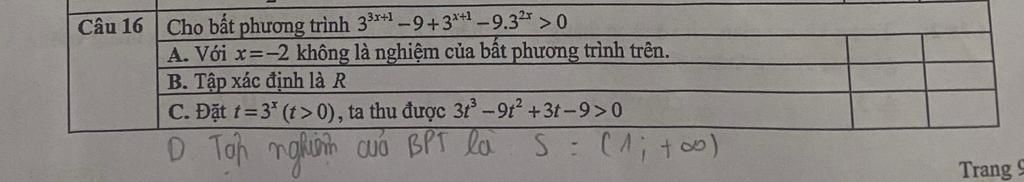 Câu 16 Cho bất phương trình 3^{3x+1} - 9 + 3^{x+1} - 9.3^{2x} > 0
A. Với x = -2 không là nghiệm của bất phương trình trên.
B. Tập xác định là R
C. Đặt t = 3^x (t > 0), ta thu được 3t^3 - 9t^2 + 3t - 9 > 0
D. Tập nghiệm của BPT là S = (1; +∞)
Trang 9